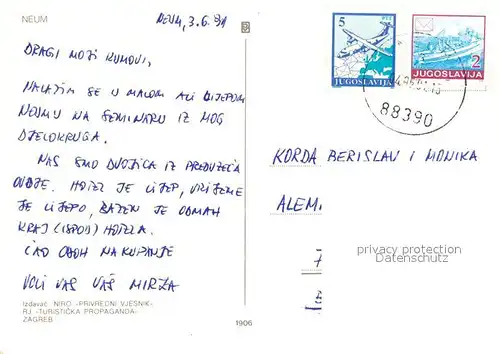 NEUM
NEUM, 3.6.91
DRAGI MOJI KUMOVI,
NALAZIM SE U MALOM ALI LIJEPOM
NEUMU NA SEMINARU IZ MOG
DJELOKRUGA.
NAS SMO DVOJICA IZ PREDUZEĆA
OVDJE. HOTEL JE LIJEP, VRIJEME
JE LIJEPO, BAZEN JE ODMAH
KRAJ (ISPOD) HOTELA.
ĆAO ODOH NA KUPANJE
VOLI VAS VAŠ MIRZA
Izdavač: NIRO »PRIVREDNI VJESNIK«
RJ »TURISTIČKA PROPAGANDA«
ZAGREB
1906
5 PTT
JUGOSLAVIJA
2
JUGOSLAVIJA
88390
KORDA BERISLAV I MONIKA
ALEM
privacy protection
Datenschutz